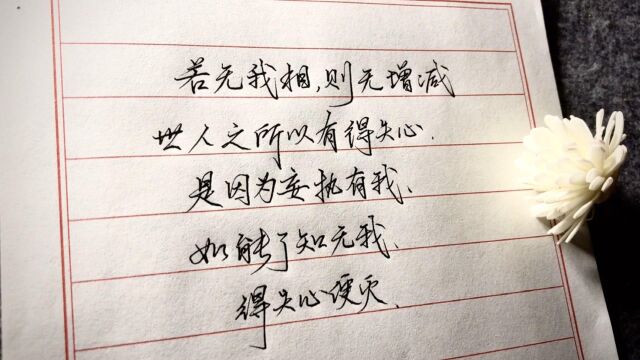 若无我相,则无增减
世人之所以有得失心.
是因为妄执有我、
如能了知无我、
得失心便灭.